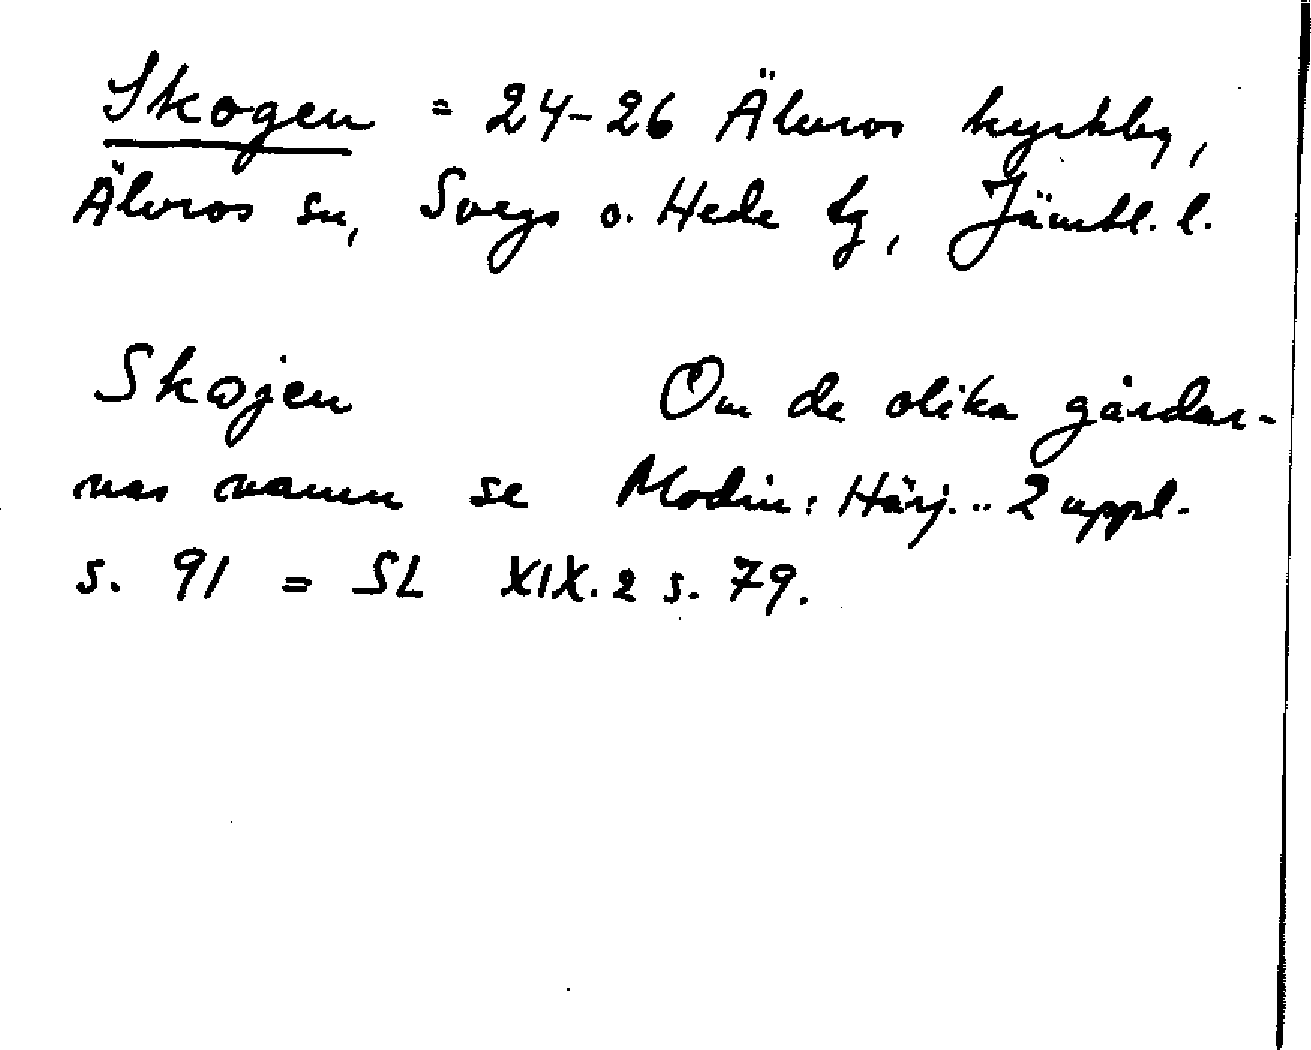 Skogen = 24-26 Älvros kyrkby,
Älvros sn, Svegs o. Hede tg, Jämtl. l.
Skojen Om de olika gårdar-
nas namn se Modin: Härj... 2 uppl.
s. 91 = SL XIX. 2 s. 79.